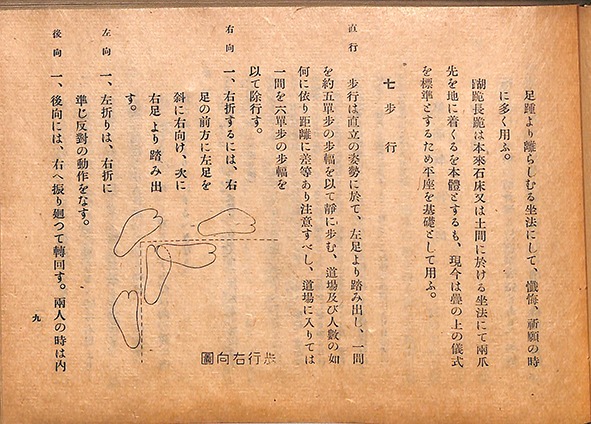 足踵より離らしむる坐法にして、懺悔、祈願の時
に多く用ふ。
胡跪長跪は本來石床又は土間に於ける坐法にて兩爪
先を地に着くるを本體とするも、現今は疊の上の儀式
を標準とするため平座を基礎として用ふ。
七 步行
直行
步行は直立の姿勢に於て、左足より踏み出し、一間
を約五單步の步幅を以て靜に步む、道場及び人數の如
何に依り距離に差等あり注意すべし、道場に入りては
一間を六單步の步幅を
以て除行す。
右向
一、右折するには、右
足の前方に左足を
斜に右向け、次に
右足より踏み出
す。
左向
一、左折りは、右折に
準じ反對の動作をなす。
後向
一、後向には、右へ振り廻つて轉回す。兩人の時は內
步行右向圖
九